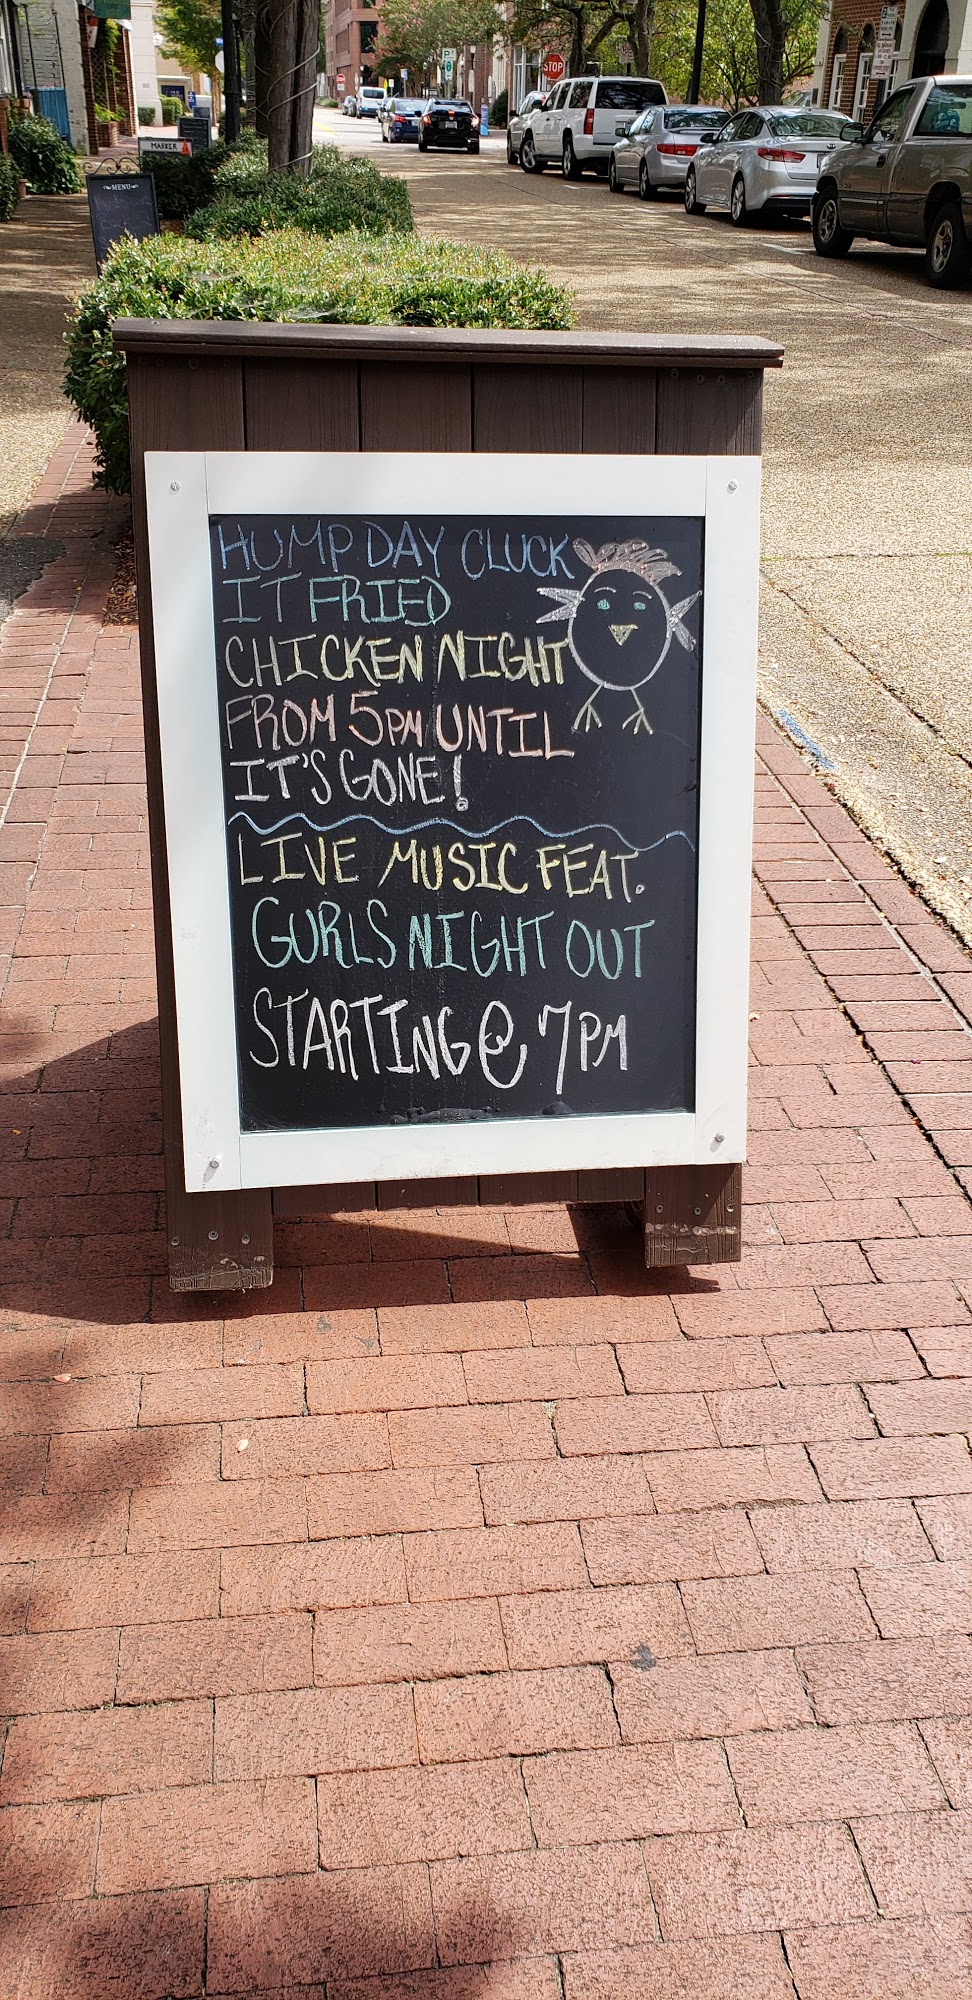 STOP
MARKER
MENU
HUMP DAY CLUCK
IT FRIED
CHICKEN NIGHT
FROM 5PM UNTIL
IT'S GONE!
LIVE MUSIC FEAT.
GURLS NIGHT OUT
STARTING @ 7PM